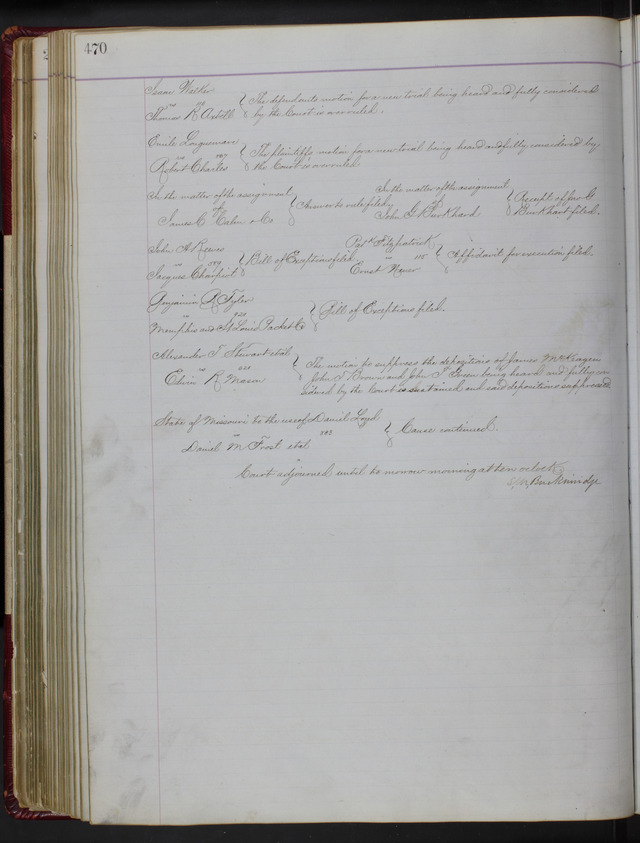 470
Isaac Walker
vs
Thomas R. Axtell
The defendants motion for a new trial being heard and fully considered
by the Court is overruled.
Emile Longuemare
vs 107
Robert Charles
The plaintiffs motion for a new trial being heard and fully considered by
the Court is overruled
In the matter of the assignment
of
James C & Co
Answer to rule filed by
In the matter of the assignment
of
John G Burkhard
Receipt of Jno G
Burkhart filed.
John A Reeves
vs
Jacques
Bill of Exceptions filed.
Pat.k Fitzpatrick
vs 115
Ernst
Affidavit for execution filed.
Benjamin R Tyler
vs
Memphis and St Louis Packet Co
Bill of Exceptions filed.
Alexander T Stewart et al
vs
Edwin R Mason
The motion to suppress the depositions of James
John S Brown and John T Green being heard and fully con
sidered by the Court is sustained and said depositions suppressed
State of Missouri to the use of Daniel Loyd
vs
Daniel M Frost et al
Cause continued.
Court adjourned until to morrow morning at ten o clock
S.M. Breckinridge